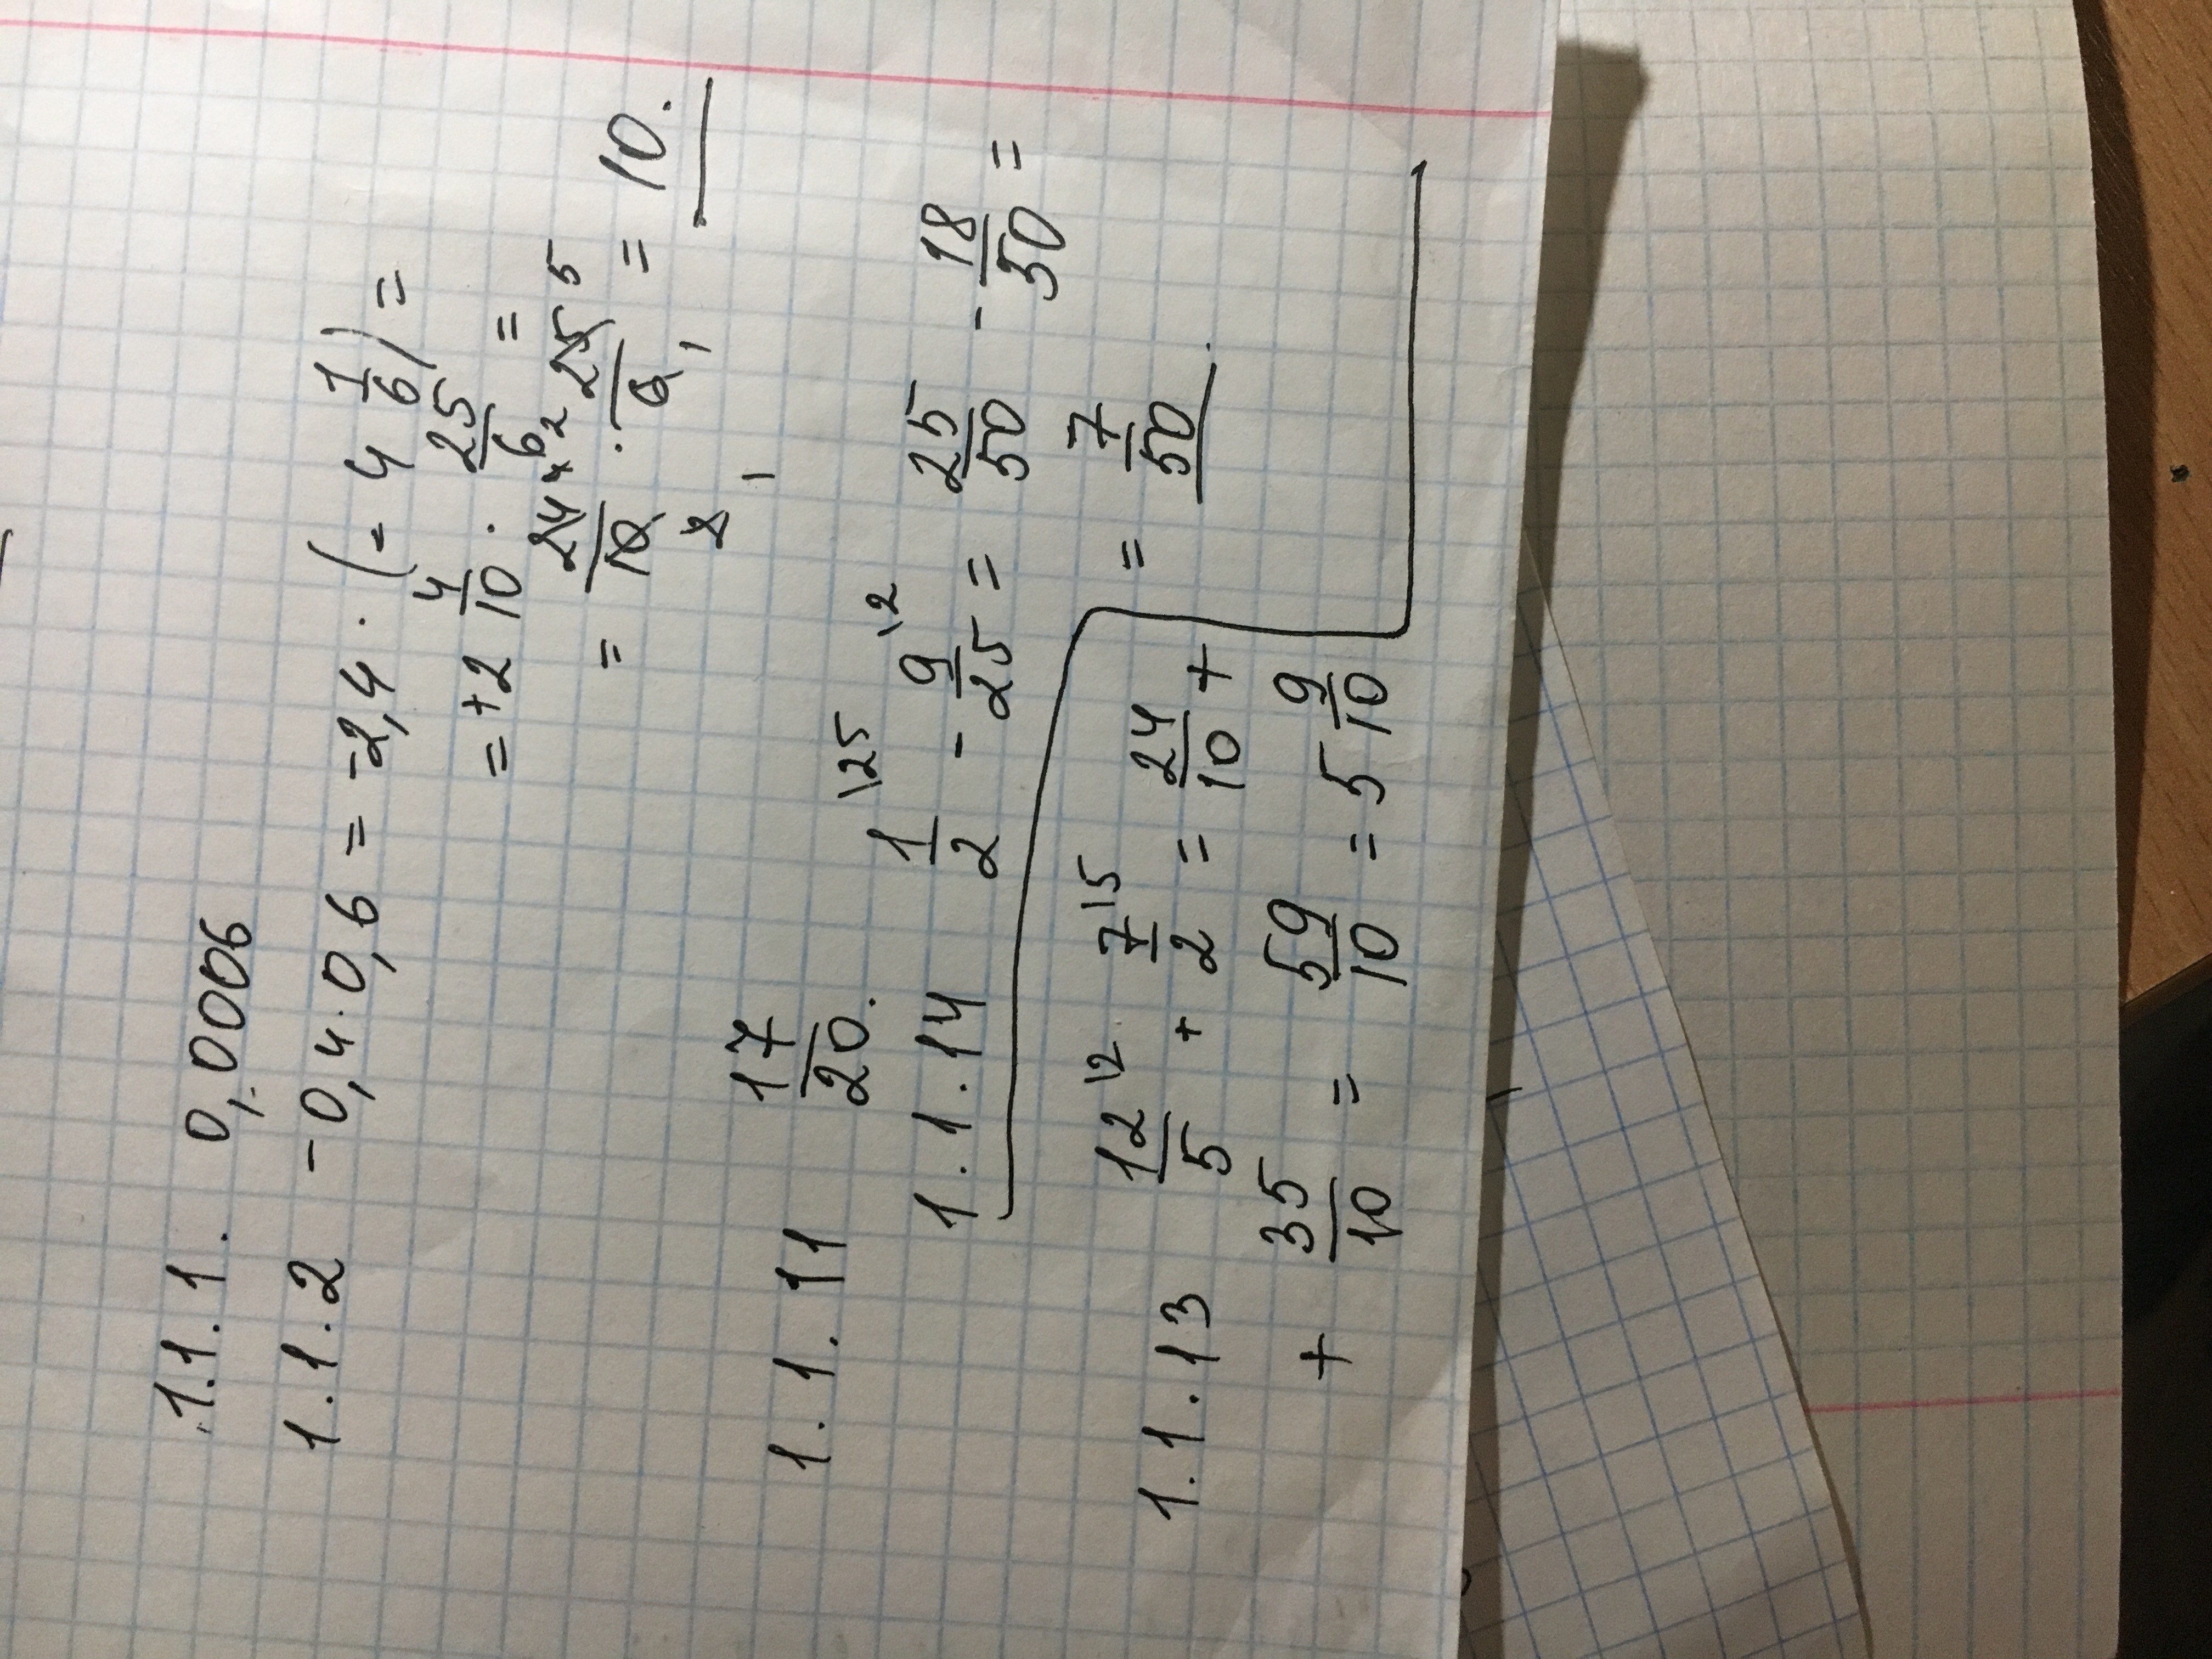 1.1.1. 0,0006
1.1.2 -0,4·0,6 = -2,4·(-4 1/6) =
= +2 4/10 · 25/6 =
= 24/10 · 25/6 = 10.
1.1.11 17/20.
1.1.14 1/2 \25 - 9/25 \2 = 25/50 - 18/50 =
= 7/50.
1.1.13 12/5 \2 + 7/2 \5 = 24/10 +
+ 35/10 = 59/10 = 5 9/10